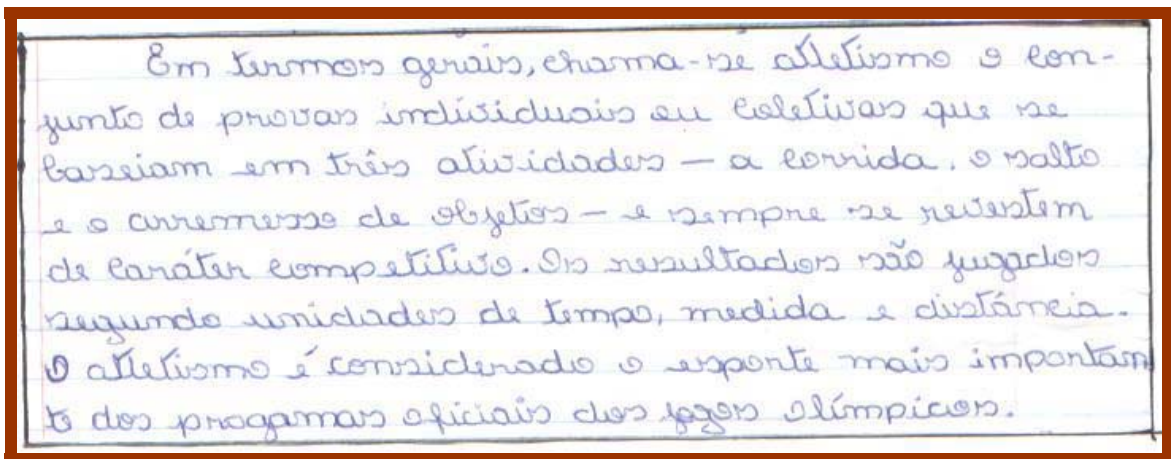 Em termos gerais, chama-se atletismo o con-
junto de provas individuais ou coletivas que se
baseiam em três atividades — a corrida. o salto
e o arremesso de objetos — e sempre se revestem
de caráter competitivo. Os resultados são jugados
segundo unidades de tempo, medida e distância.
O atletismo é considerado o esporte mais importan
te dos progamas oficiais dos jogos olímpicos.